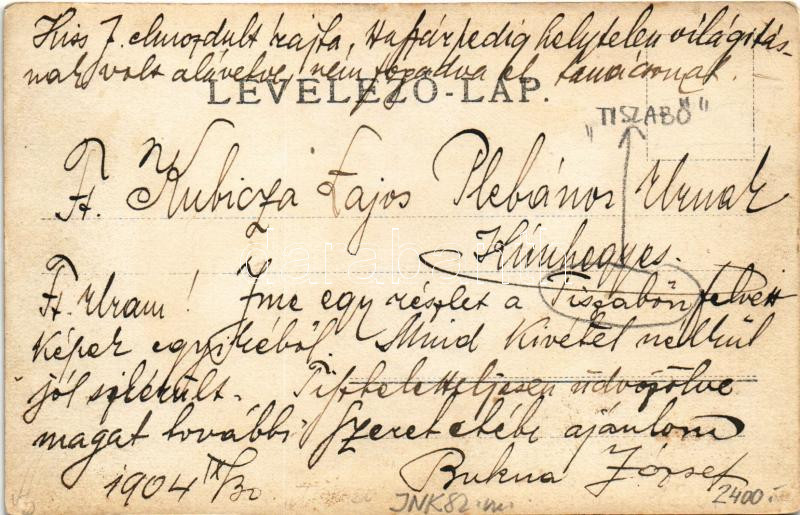 Kiss J. elmozdult rajta, Huffár pedig helytelen világitás-
nak volt alávetve, nem fogadva el tanácsomat.
LEVELEZŐ-LAP.
"TISZABŐ"
Ft. Kubicza Lajos Plebános Urnak
Kúnhegyes.
Ft. Uram! Ime egy részlet a Tiszabőn felvett
képek egyikéből Mind kivétel nélkül
jól sikerült. Tiszteletteljesen üdvözölve
magát további szeretetébe ajánlom
1904 IX/30 Bukna József
JNK82
2400.-